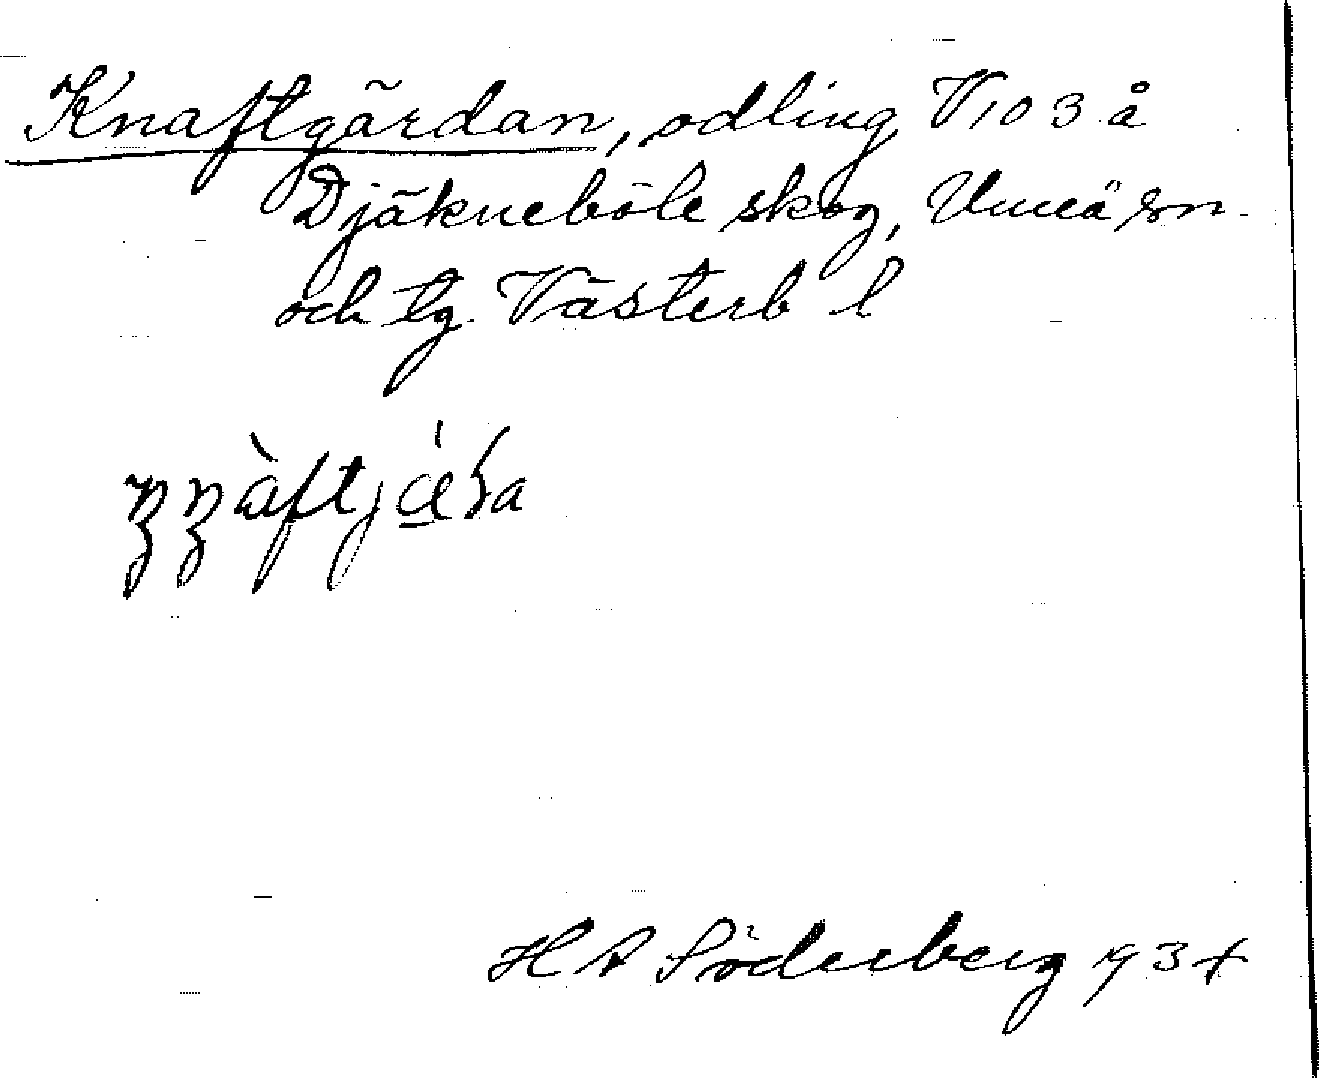 Knaftgärdan, odling V 10 3 å
Djäkneböle skog, Umeå sn
och tg. Västerb l
H A Söderberg 1934